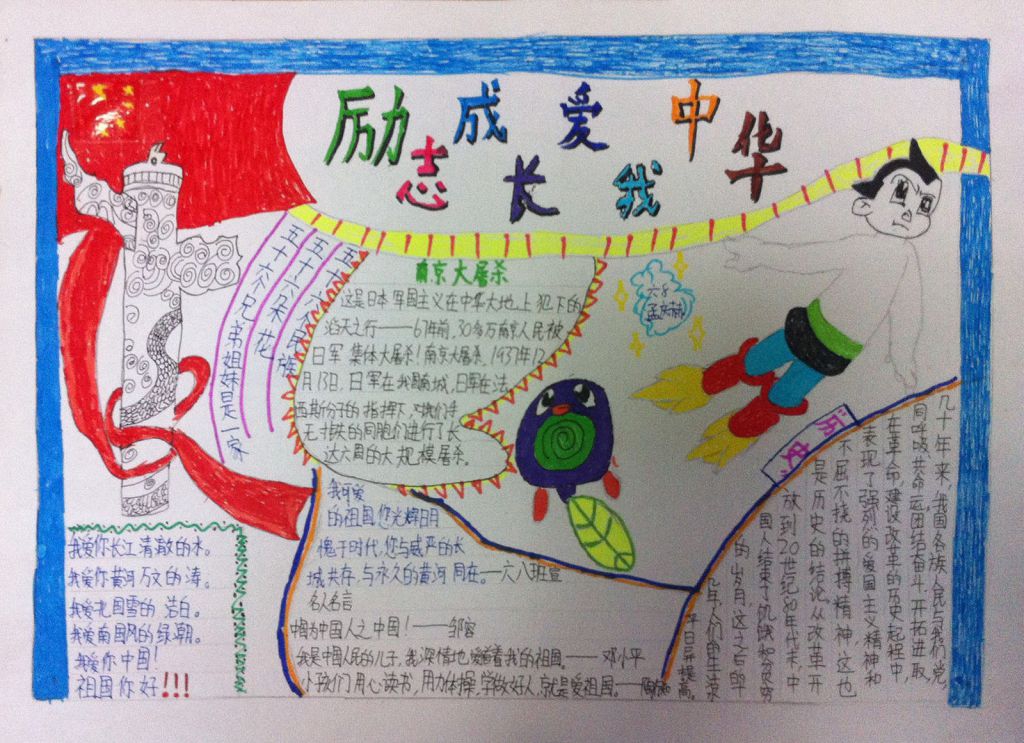 励志成长 爱我中华
五十六个民族
五十六朵花
五十六个兄弟姐妹是一家
南京大屠杀
这是日本军国主义在中华大地上犯下的
滔天之行——67年前,30多万南京人民被
日军集体大屠杀!南京大屠杀,1937年12
月13日,日军在我国南城,日军在法
西斯分子的指挥下,对我们手
无寸铁的同胞们进行了长
达六周的大规模屠杀。
六8
历史
几十年来,我国各族人民与我们党,
同呼吸,共命运,团结奋斗,开拓进取,
在革命,建设改革的历史起程中,
表现了强烈的爱国主义精神和
不屈不挠的拼搏精神,这也
是历史的结论,从改革开
放到20世纪80年代末,中
国人结束了饥饿和贫穷
的岁月,这之后的
几年人们的生活
日异提高。
我可爱
的祖国,您光辉日月
愧于时代,您与威严的长
城共存,与永久的黄河同在。—六八班宣
名人名言
中国为中国人之中国!——邹容
我是中国人民的儿子,我深情地爱着我的祖国。——邓小平
小孩们用心读书,用力体操,学做好人,就是爱祖国。
我爱你长江清澈的水。
我爱你黄河万丈的涛。
我爱北国雪的洁白。
我爱南国风的绿潮。
我爱你中国!
祖国你好!!!